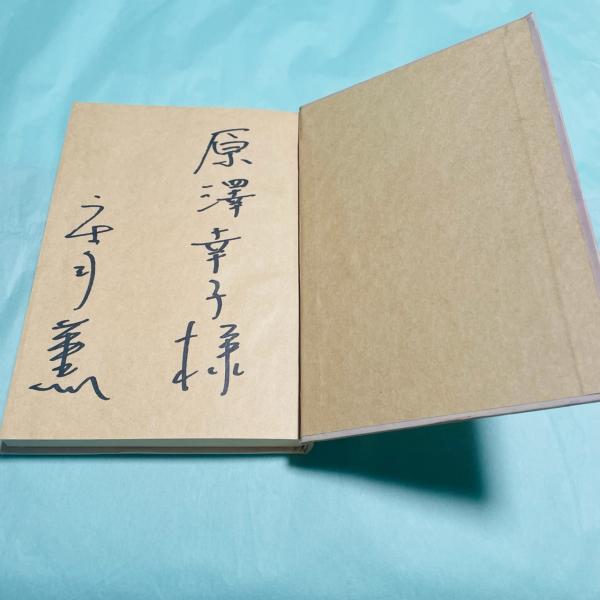 原澤幸子様
庄司薫